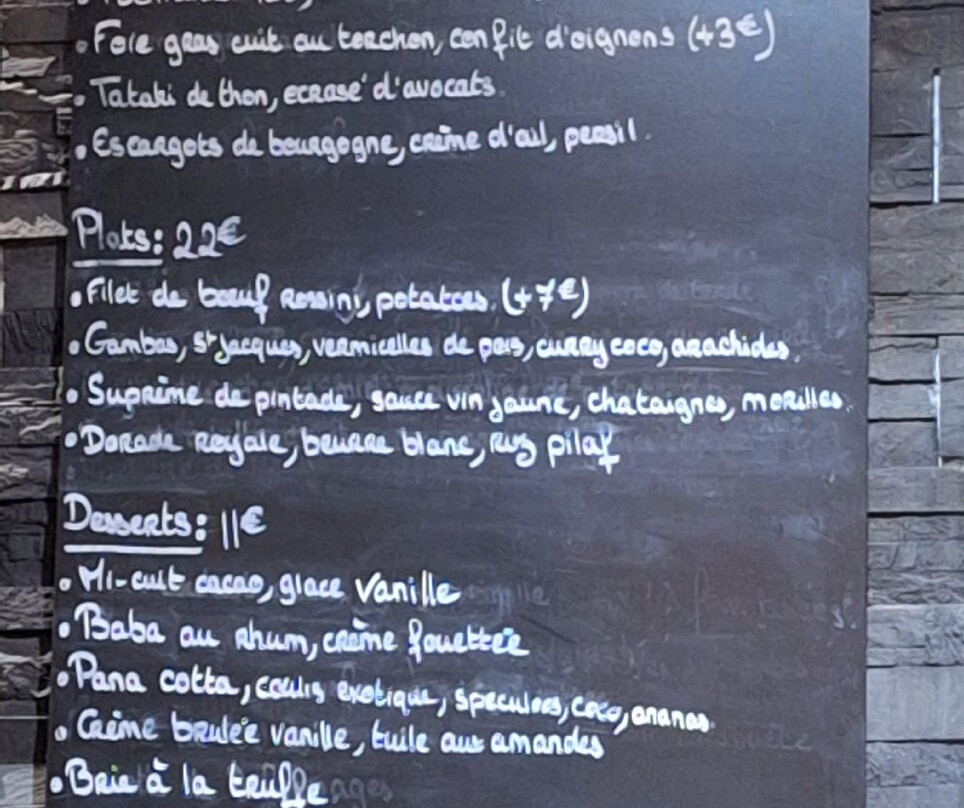 • Foie gras cuit au torchon, confit d'oignons (+3€)
• Tataki de thon, ecrasé d'avocats.
• Escargots de bourgogne, crème d'ail, persil.
Plats: 22€
• Filet de boeuf Rossini, potatoes. (+7€)
• Gambas, St Jacques, vermicelles de pois, curry coco, arachides.
• Suprême de pintade, sauce vin jaune, chataignes, morilles.
• Dorade royale, beurre blanc, riz pilaf
Desserts: 11€
• Mi-cuit cacao, glace vanille
• Baba au rhum, crème fouettée
• Pana cotta, coulis exotique, speculoos, coco, ananas.
• Crème brulée vanille, tuile aux amandes
• Brie à la truffe